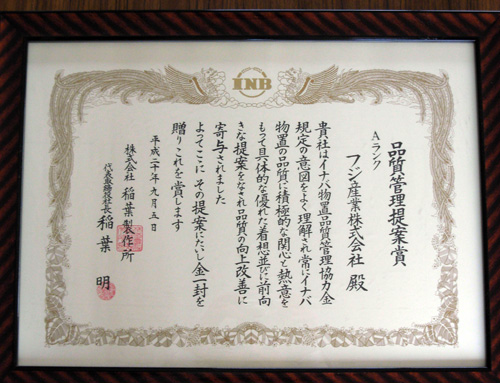 INB
品質管理提案賞
Aランク
フジ産業株式会社 殿
貴社はイナバ物置品質管理協力金
規定の意図をよく理解され常にイナバ
物置の品質に積極的な関心と熱意を
もって具体的な優れた着想並びに前向
きな提案をなされ品質の向上改善に
寄与されました
よってここに その提案にたいし金一封を
贈りこれを賞します
平成二十年九月五日
株式会社 稲葉製作所
代表取締役社長 稲葉 明